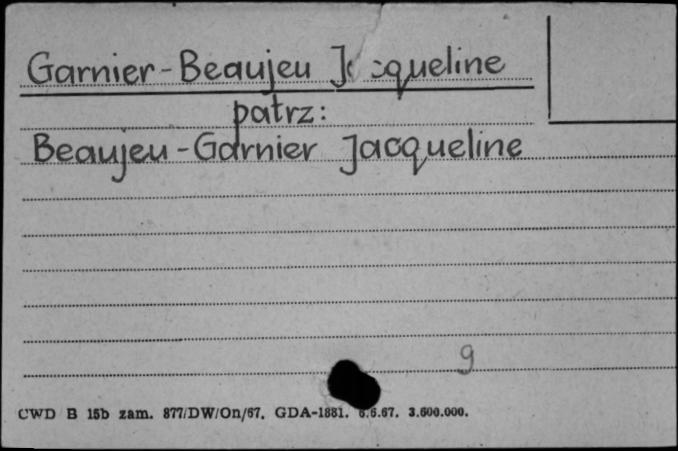 Garnier-Beaujeu Jacqueline
patrz:
Beaujeu-Garnier Jacqueline
9
CWD B 15b zam. 877/DW/On/67. GDA-1881. 6.6.67. 3.600.000.